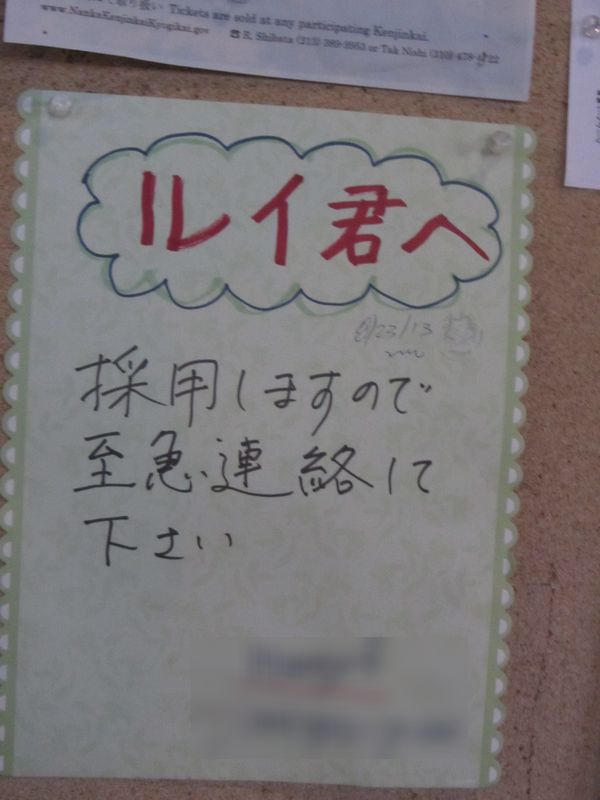 り扱い Tickets are sold at any participating Kenjinkai.
www.NankaKenjinkaiKyogikai.gov ☎ R. Shibata (213) 389-3953 or Tak Nishi (310) 478-4722
ルイ君へ
8/23/13
採用しますので
至急連絡して
下さい